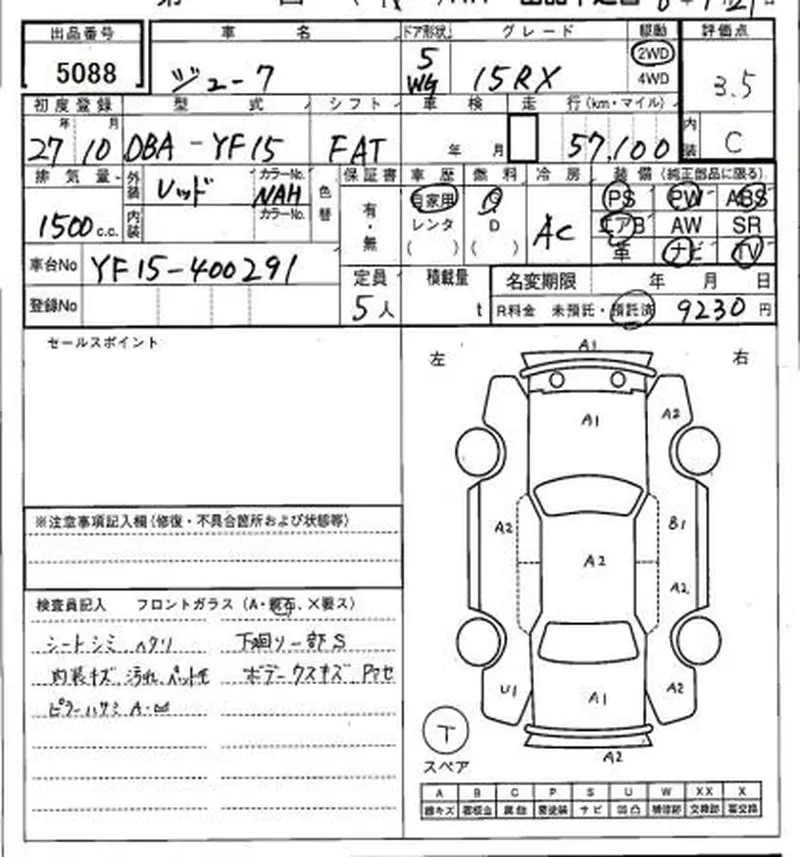 出品番号 車名 ドア形状 グレード 駆動 評価点
5088 ジューク 5 WG 15RX 2WD 4WD 3.5
初度登録 型式 シフト 車検 走行(km・マイル) 内装 C
27年 10月 DBA-YF15 FAT 年 月 57,100
排気量 外装 レッド カラーNo. NAH 色替 保証書 車歴 燃料 冷房 装備(純正部品に限る)
1500c.c. 内装 カラーNo. 有・無 自家用 レンタ ( ) G D ( ) AC PS PW ABS
エアB AW SR
革 ナビ TV
車台No YF15-400291 定員 積載量 名変期限 年 月 日
登録No 5人 t R料金 未預託・預託済 9230円
セールスポイント
左 右
A1
A1 A2
A2 B1
A2 A2
U1 A1 A2
A2
※注意事項記入欄(修復・不具合箇所および状態等)
検査員記入 フロントガラス(A・飛石、×要ス)
シートシミ ハクリ 下廻り一部S
内装キズ、汚れ、
スペア
A B C P S U W XX X
線キズ 腐蝕 要塗装 サビ 凹凸 補修跡 交換跡 要交換